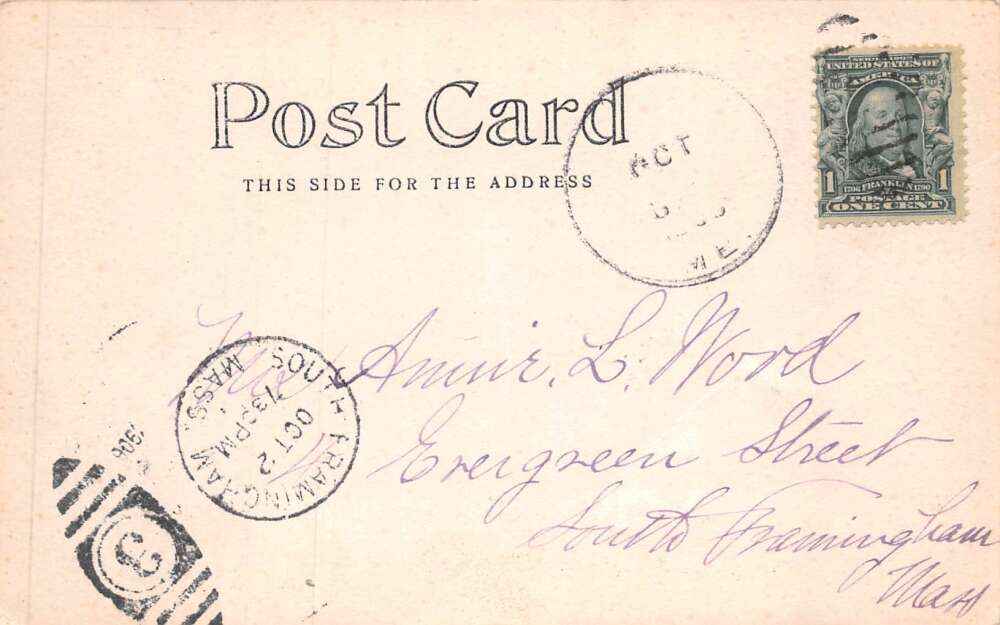 Post Card
THIS SIDE FOR THE ADDRESS
SERIES 1902
UNITED STATES OF
AMERICA
1 1706 FRANKLIN 1790 1
POSTAGE
ONE CENT
OCT
ME.
SOUTH FRAMINGHAM
MASS.
OCT 2
730PM
1906
3
Annie L. Wood
Evergreen Street
South Framingham
Mass